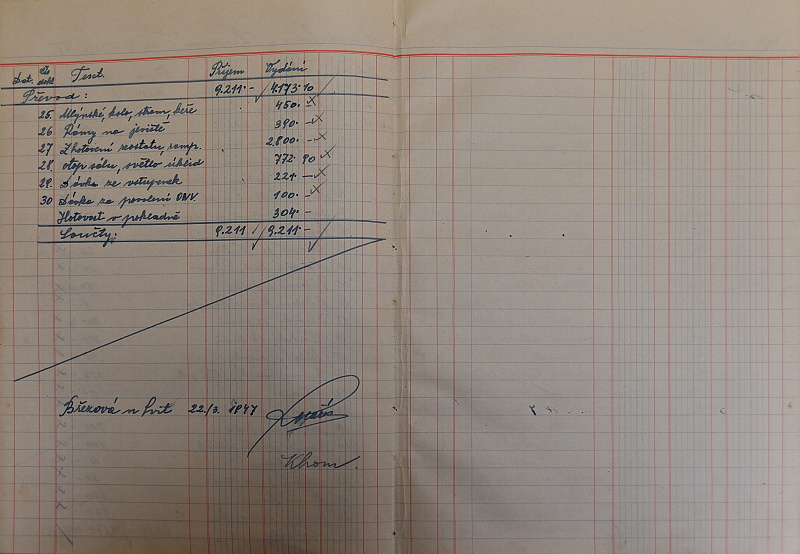 Dat. Čs. dokl. Text. Příjem Vydání
Převod: 9.211·- 4.173·10
25. Mlýnské, kolo, strom, keře 450·-
26 Rámy na jeviště 390·-
27 Zhotovení scostatu, romp. 2.800·-
28. otop sálu, světlo úklid 772·90
29. Dávka ze vstupenek 221·-
30 Dávka za povolení ONV. 100·-
Hotovost v pokladně 304·-
Součty: 9.211 9.211·-
Březová n Svit 22./3. 1947
Khom.